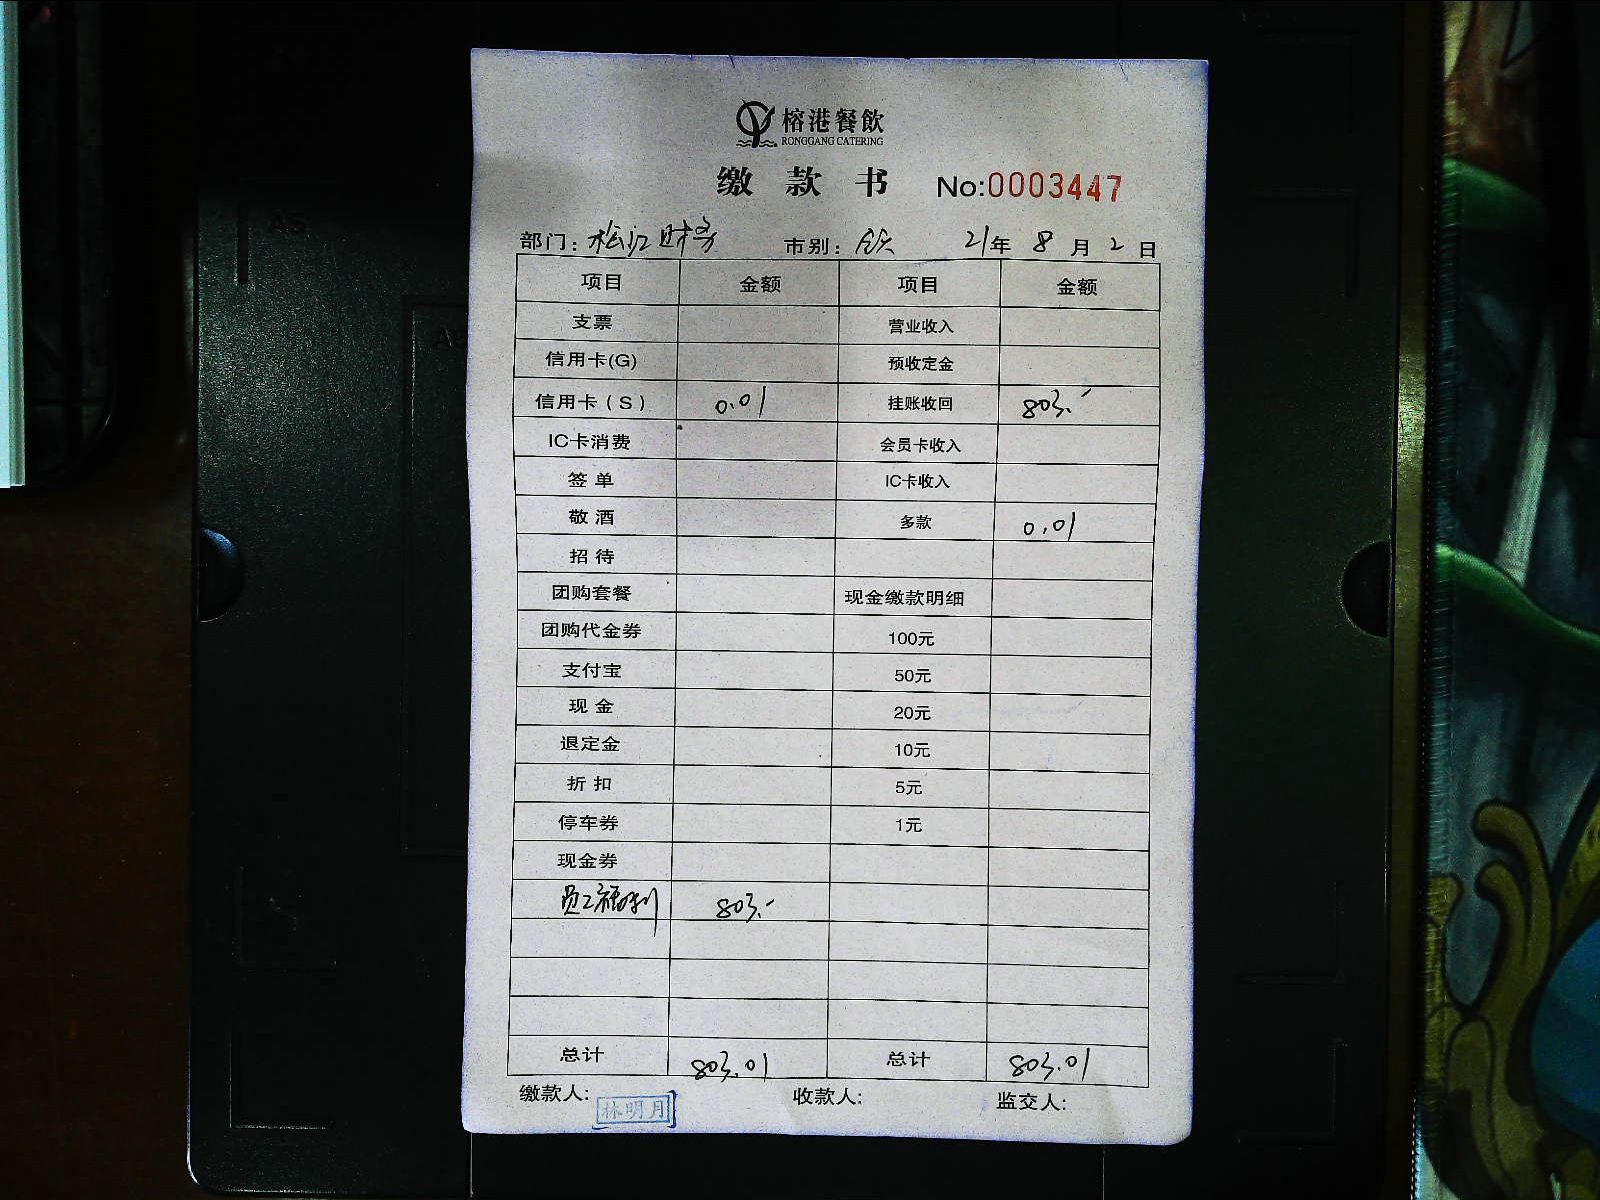 榕港餐飲
RONGGANG CATERING
缴款书 No:0003447
部门: 松江财务 市别: 21年8月2日
项目 金额 项目 金额
支票 营业收入
信用卡(G) 预收定金
信用卡(S) 0.01 挂账收回 803.-
IC卡消费 会员卡收入
签单 IC卡收入
敬酒 多款 0.01
招待
团购套餐 现金缴款明细
团购代金券 100元
支付宝 50元
现金 20元
退定金 10元
折扣 5元
停车券 1元
现金券
员工福利 803.-
总计 803.01 总计 803.01
缴款人: 林明月 收款人: 监交人: